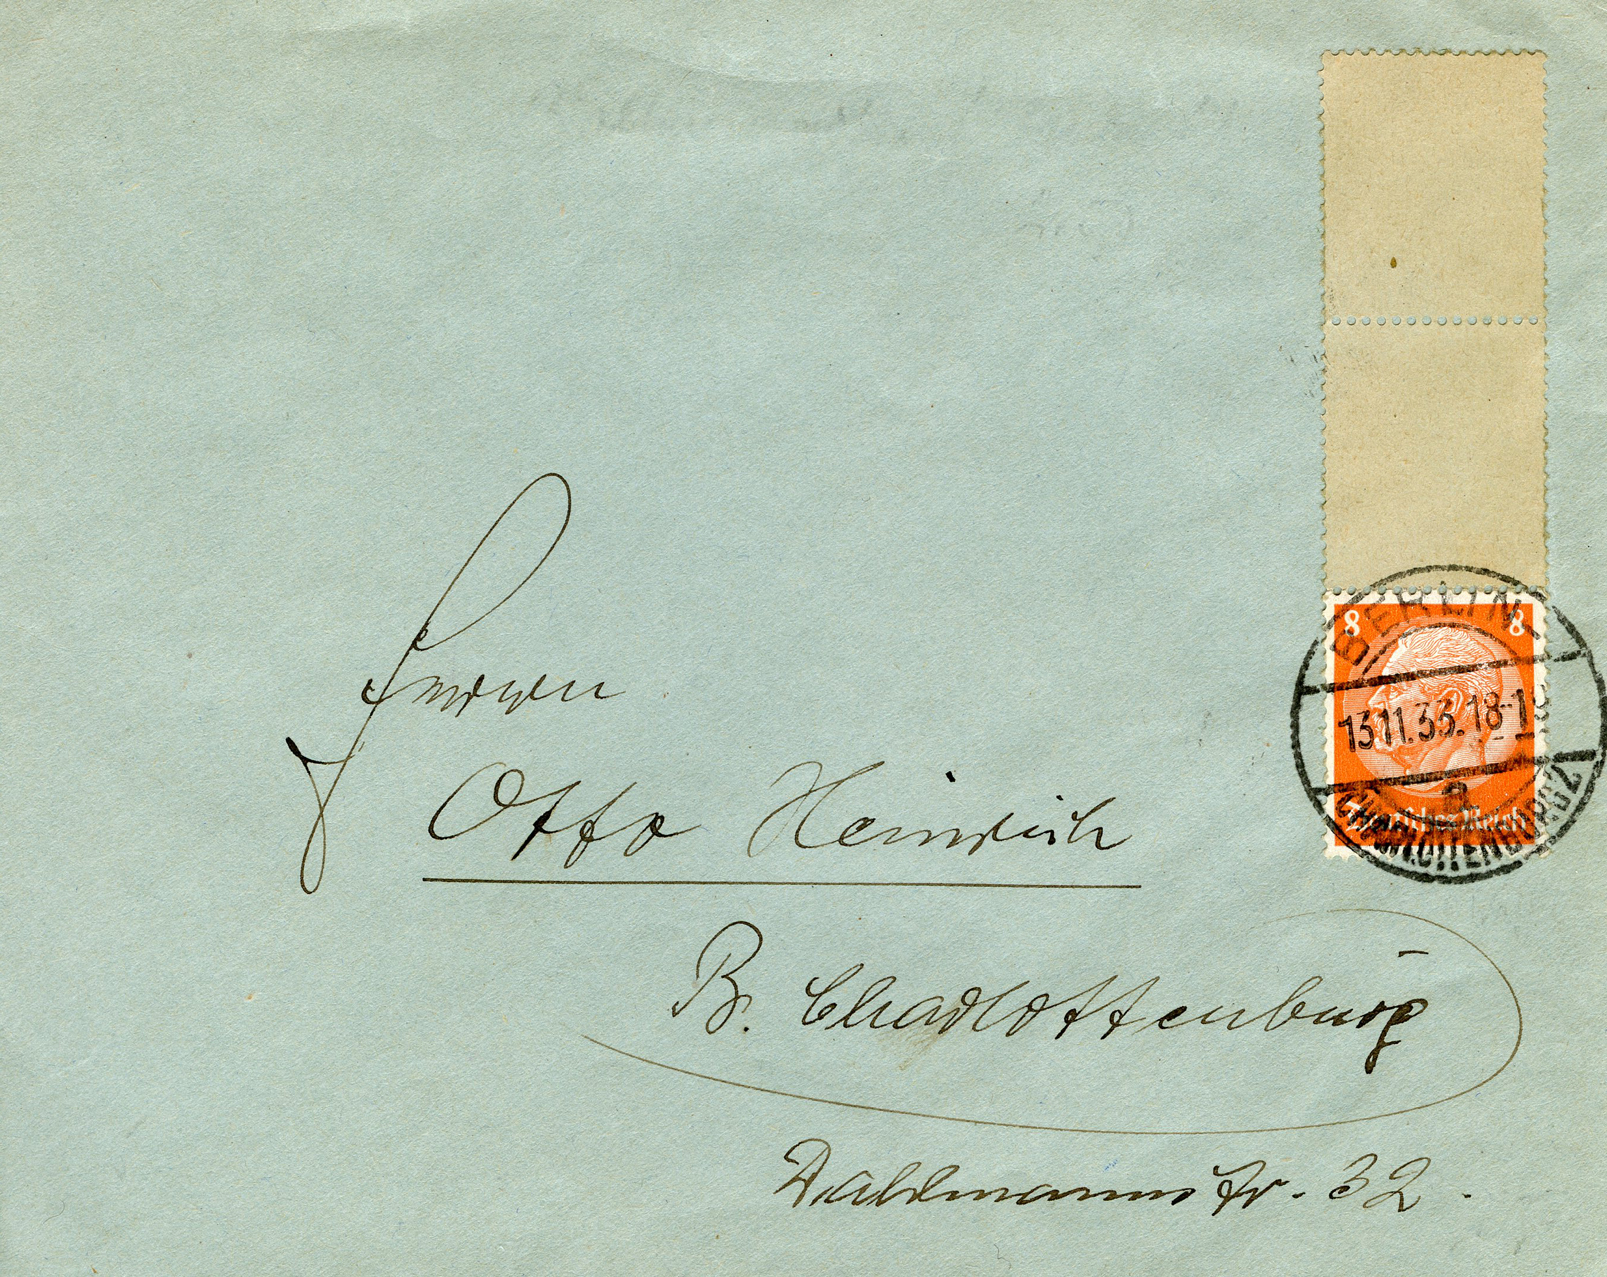 8 8
BERLIN-
13.11.33.18-19
a
CHARLOTTENBURG 2
Deutsches Reich
Herrn
Otto Heinrich
B. Charlottenburg
Dahlmannstr. 32.